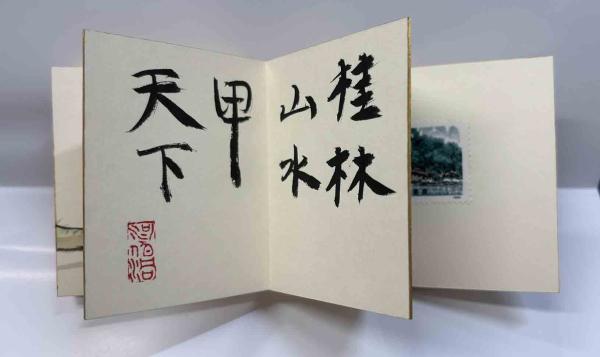 桂林
山水
甲
天下